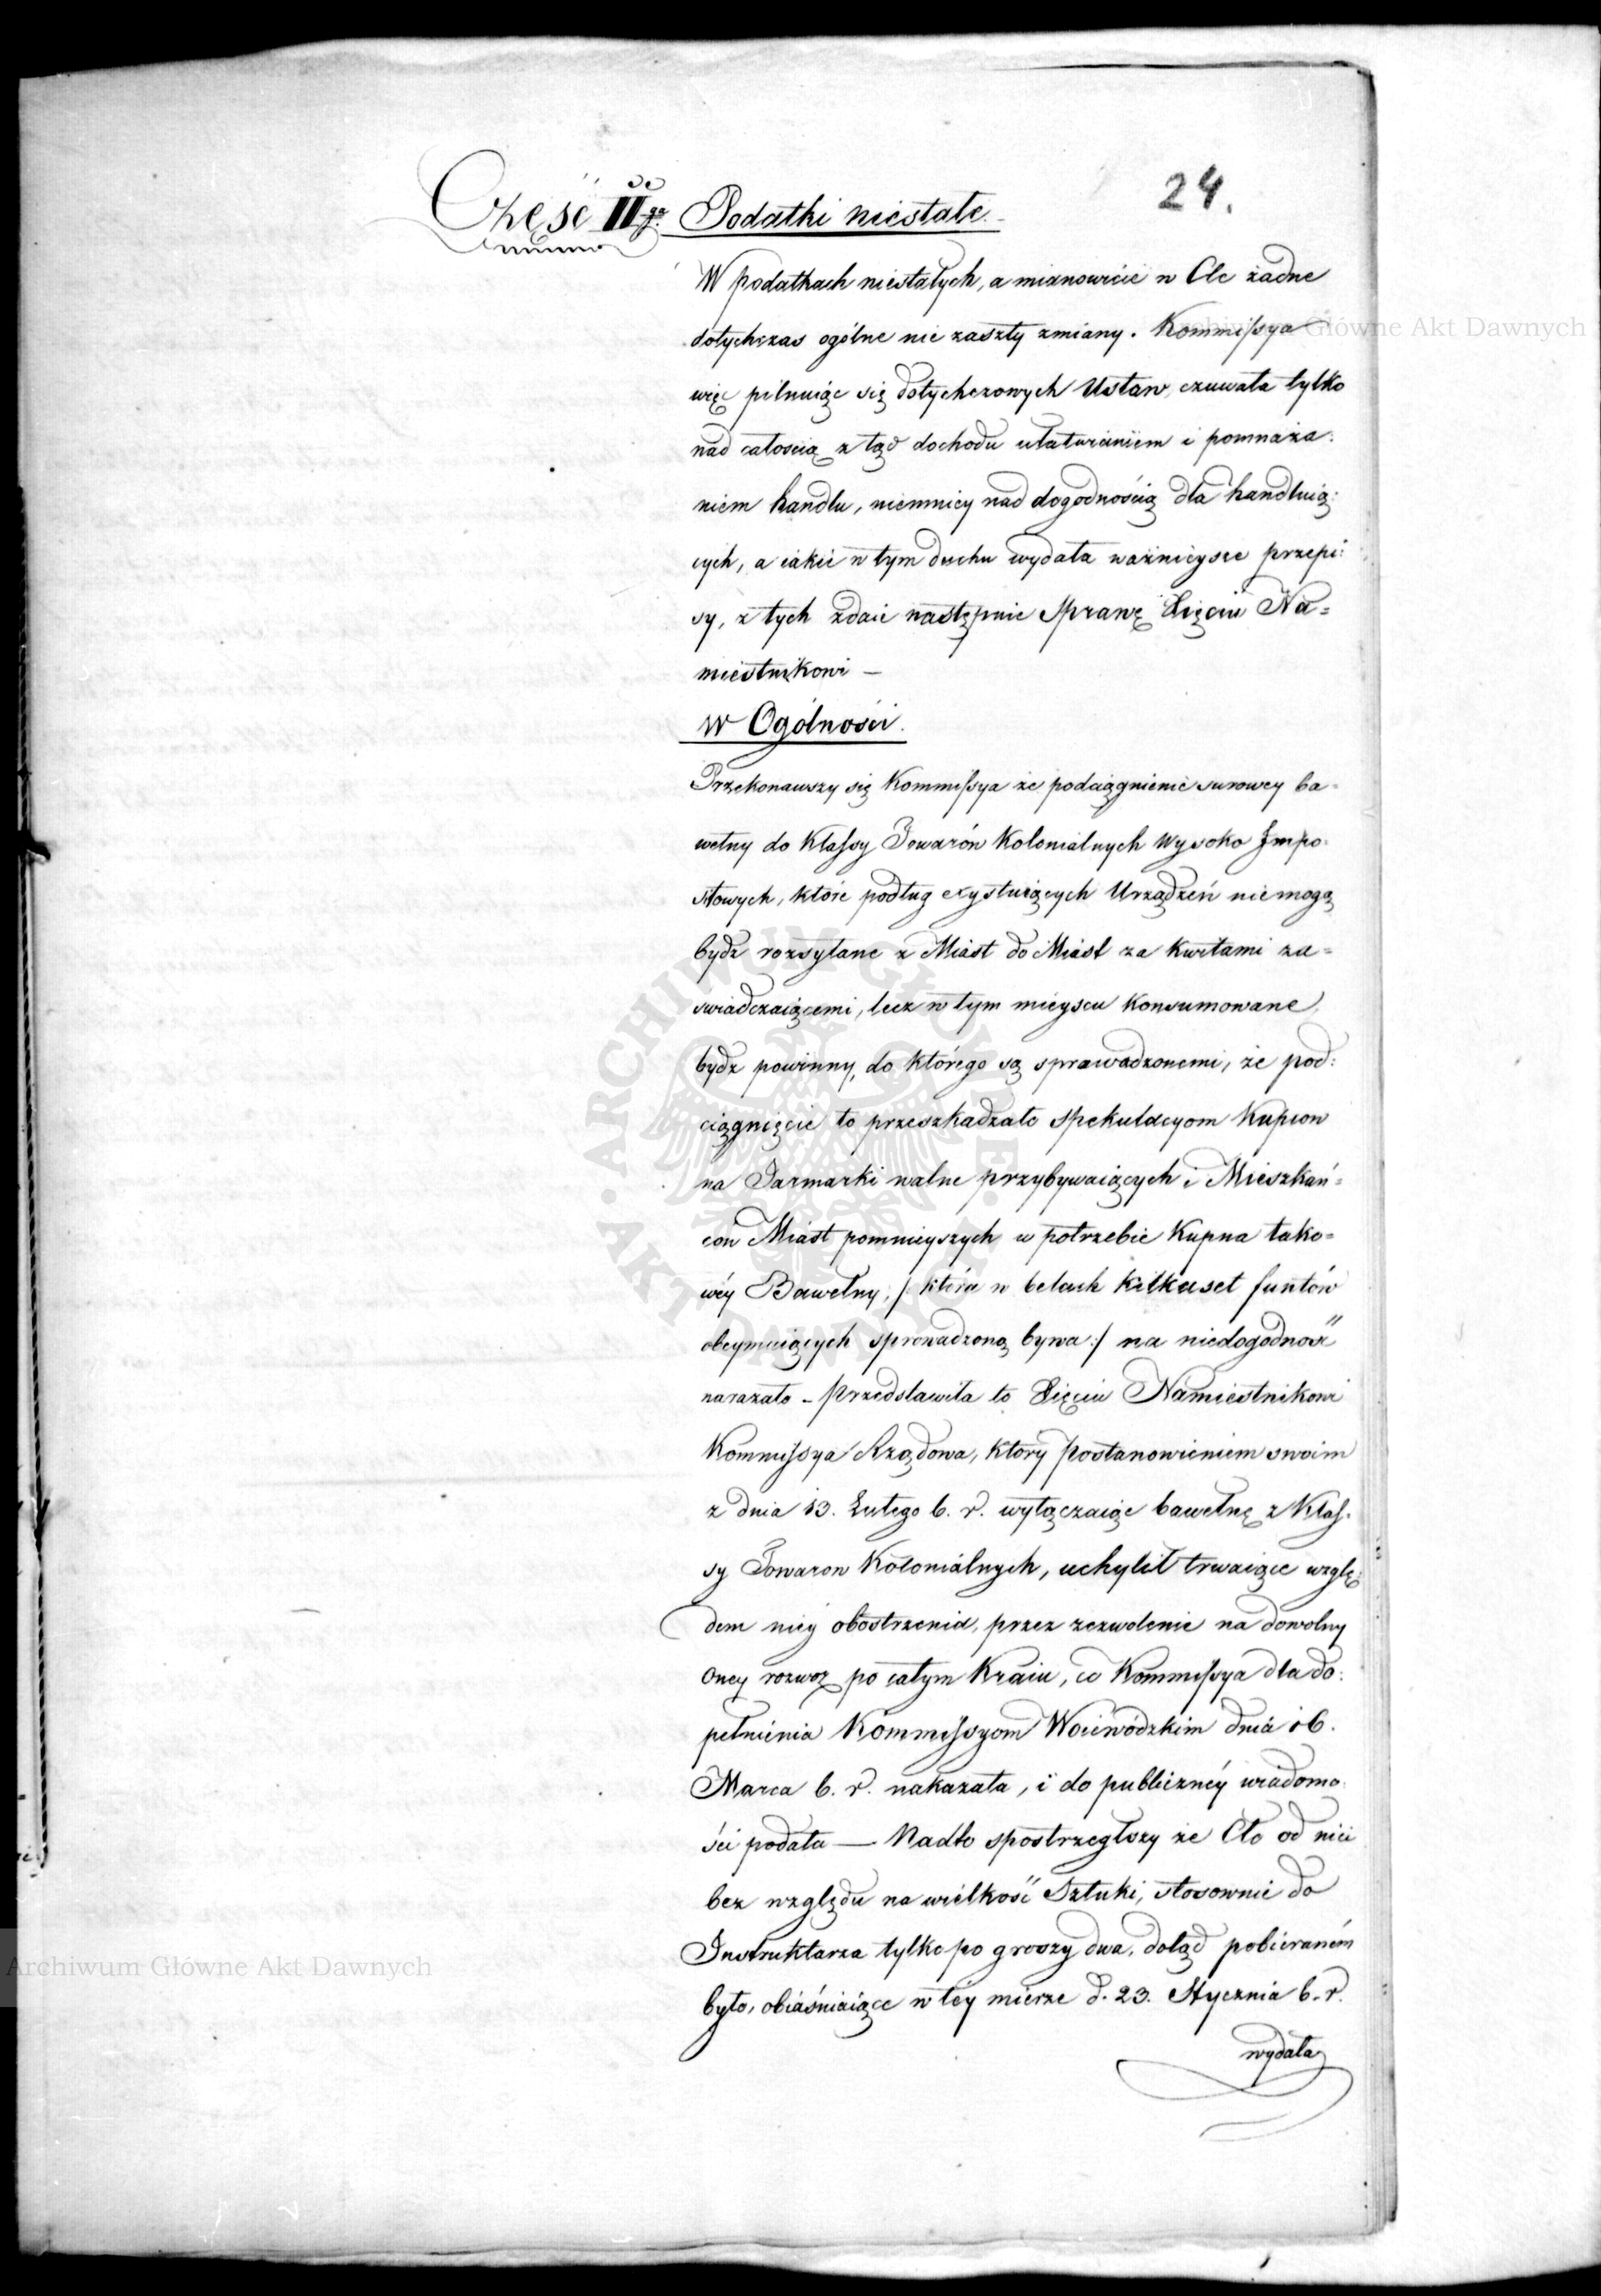 24.
Część II ga Podatki niestałe.
W podatkach niestałych, a mianowicie w Cle żadne
dotychczas ogólne nie zaszły zmiany. Kommissya
więc pilnuiąc się dotychczowych Ustaw, czuwała tylko
nad całością z tąd dochodu ułatwieniem i pomnaża:
niem handlu, niemniey nad dogodnością dla handluią:
cych, a iakie w tym duchu wydała ważnieysze przepi:
sy, z tych zdaie następnie Sprawę Xięciu Na=
miestnikowi —
W Ogólności.
Przekonawszy się Kommissya że podciągnienie surowey ba=
wełny do Klassy Towarów Kolonialnych wysoko Impo:
stowych, które podług exystuiących Urządzeń niemogą
bydź rozsyłane z Miast do Miast za Kwitami za=
swiadczaiącemi, lecz w tym mieyscu Konsumowane
bydź powinny, do którego są sprawadzonemi, że pod:
ciągnięcie to przeszkadzało spekulacyom Kupcow
na Jarmarki walne przybywaiących i Mieszkań=
ców Miast pomnieyszych w potrzebie Kupna tako=
wéy Bawełny, /: która w belach kilkaset funtów
obeymuiących sprowadzoną bywa :/ na niedogodność
narażało – przedstawiła to Xięciu Namiestnikowi
Kommissya Rządowa, który postanowieniem swoim
z dnia 13. Lutego b. r. wyłączaiąc bawełnę z Klas:
sy Towarow Kolonialnych, uchylił trwaiące wzglę:
dem niey obostrzenia, przez zezwolenie na dowolny
oney rozwoz po całym Kraiu, co Kommissya dla do:
pełnienia Kommissyom Woiewódzkim dnia 16.
Marca b. r. nakazała, i do publicznéy wiadomo:
ści podała — Nadto spostrzegłszy że Cło od nici
bez względu na wielkość Sztuki, stosownie do
Instruktarza tylko po groszy dwa, dotąd pobieraném
było, obiaśniaiące w téy mierze d. 23. Stycznia b. r.
wydała
Archiwum Główne Akt Dawnych
Archiwum Główne Akt Dawnych
ARCHIWUM GŁÓWNE AKT DAWNYCH